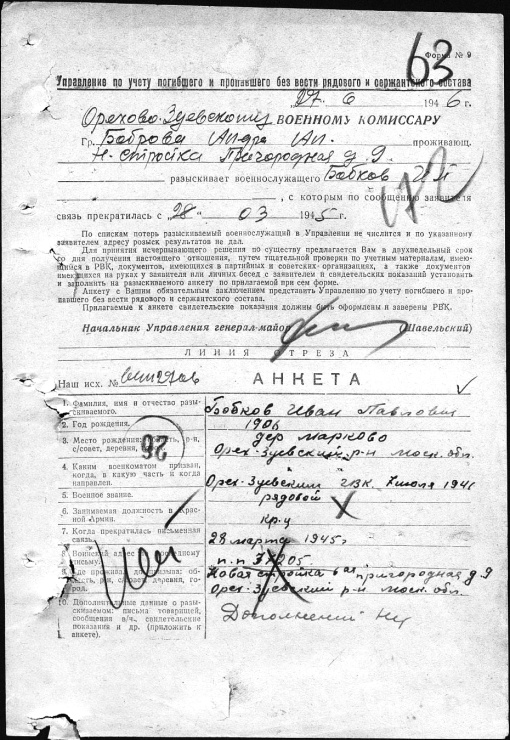 63
Форма № 9
Управление по учету погибшего и пропавшего без вести рядового и сержантского состава
„27“ 6 1946 г.
Орехово-Зуевскому ВОЕННОМУ КОМИССАРУ
Гр. Боброва проживающ.
Н-стройка Пригородная д. 9
разыскивает военнослужащего Бобков И П
, с которым по сообщению заявителя
связь прекратилась с „28“ 03 1945 г.
По спискам потерь разыскиваемый военнослужащий в Управлении не числится и по указанному
заявителем адресу розыск результатов не дал.
Для принятия исчерпывающего решения по существу предлагается Вам в двухнедельный срок
со дня получения настоящего отношения, путем тщательной проверки по учетным материалам, имею-
щийся в РВК, документов, имеющихся в партийных и советских организациях, а также документов
имеющихся на руках у заявителя или личных бесед с заявителем и свидетельских показаний установить
и заполнить на разыскиваемого анкету по прилагаемой при сем форме.
Анкету с Вашим обязательным заключением представить Управлению по учету погибшего и про-
павшего без вести рядового и сержантского состава.
Прилагаемые к анкете свидетельские показания должны быть оформлены и заверены РВК.
Начальник Управления генерал-майор (Шавельский)
ЛИНИЯ ОТРЕЗА
Наш исх. №
АНКЕТА
1. Фамилия, имя и отчество разы-
скиваемого.
Бобков Иван Павлович
2. Год рождения.
1906
3. Место рождения: область, р-н,
с/совет, деревня,
26
дер Марково
Орех-Зуевский р-н моск. обл.
4. Каким военкоматом призван,
когда, в какую часть и когда
направлен.
Орех-Зуевским ГВК 7 июля 1941
5. Военное звание.
рядовой
6. Занимаемая должность в Крас-
ной Армии.
кр-ц
7. Когда прекратилась письменная
связь.
28 марта 1945 г
8. Воинский адрес по последнему
письму.
9. Где проживал до призыва: об-
ласть, р-н, с/совет, деревня, го-
род.
Новая стройка 6 ая пригородная д 9
Орех-Зуевский р-н моск. обл.
10. Дополнительные данные о разы-
скиваемом: письма товарищей,
сообщения в/ч., свидетельские
показания и др. (приложить к
анкете).
Дополнений нет